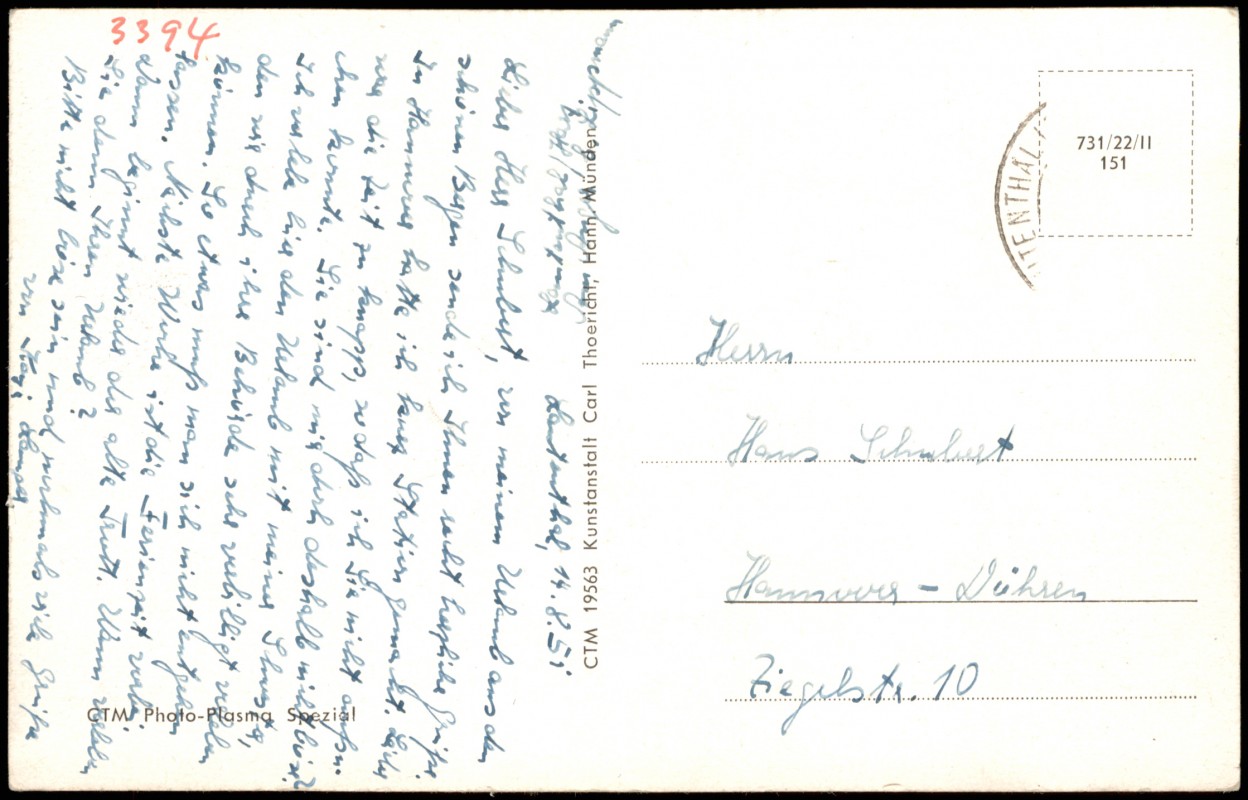 3394
Lautenthal, 14.8.51
Lieber Herr Schubert, von meinem Urlaub aus dem
schönen Bergen sende ich Ihnen recht herzliche Grüße.
In Hannover hatte ich kurz Station gemacht. Leider
war die Zeit zu knapp, sodaß ich Sie nicht aufsu-
chen konnte. Sie sind mir doch deshalb nicht böse?
Ich verlebe hier den Urlaub mit meiner Schwester,
den wir durch ihre Behörde sehr verbilligt verleben
können. So etwas muß man sich nicht entgehen
lassen. Nächste Woche ist die Ferienzeit vorbei.
Dann beginnt wieder der alte Trott. Wann
Sie denn Ihren Urlaub?
Bitte nicht böse sein und nochmals viele Grüße
von
CTM 19563 Kunstanstalt Carl Thoericht, Hann. Münden
CTM Photo-Plasma Spezial
TENTHAL
731/22/II
151
Herrn
Hans Schubert
Hannover - Döhren
Ziegelstr. 10